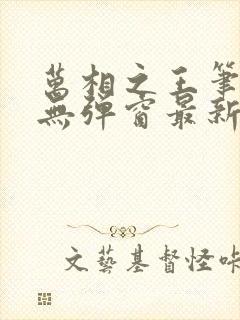 萬相之王筆
無彈窗最新
文藝基督怪咔